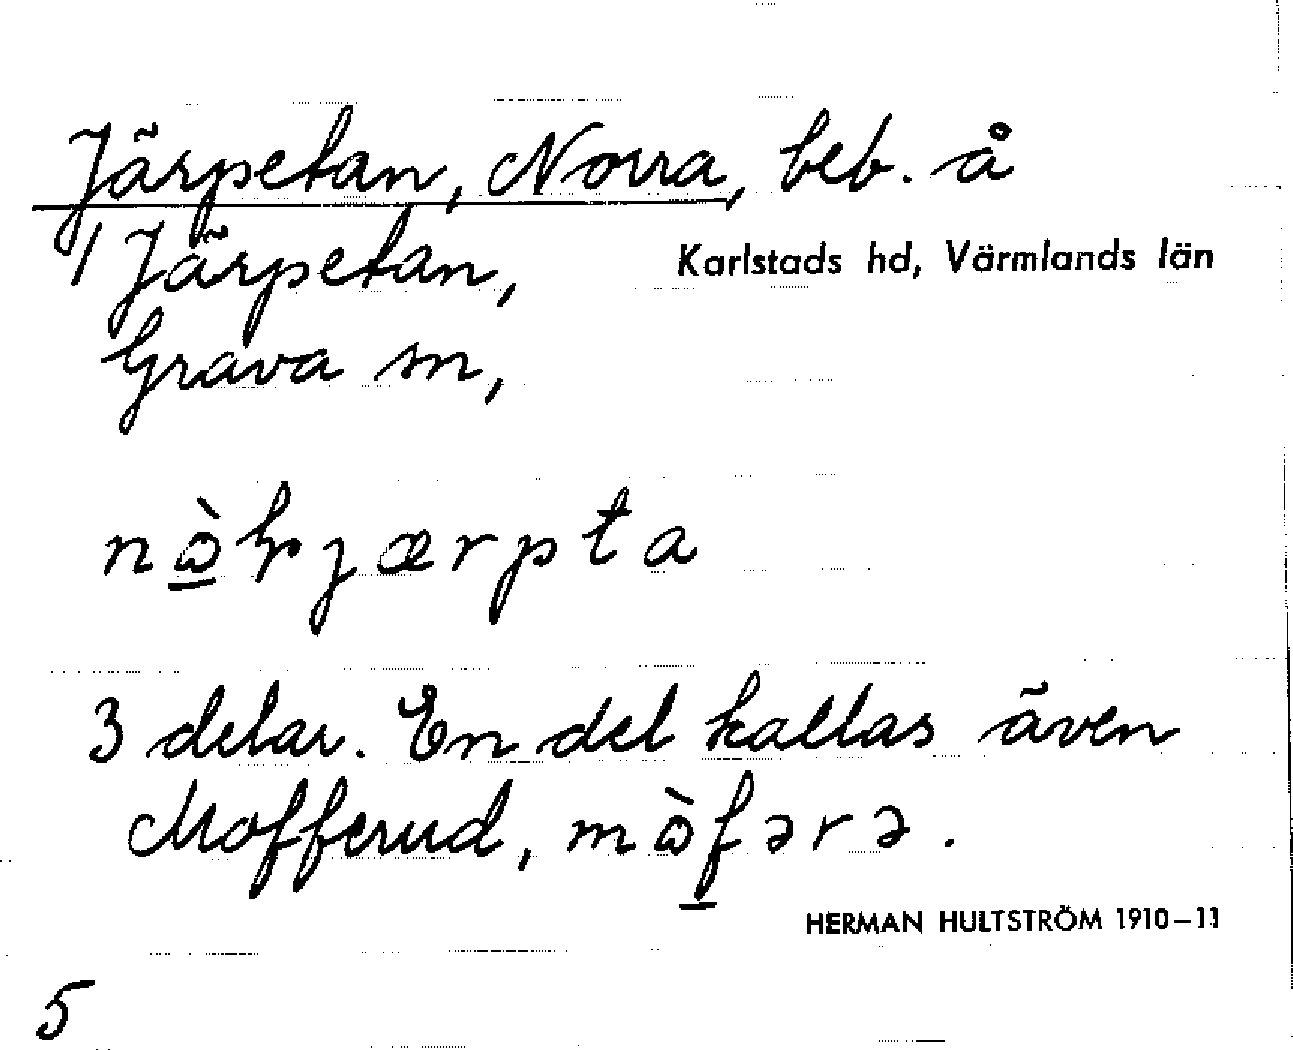 Järpetan, Norra, beb. å
1 Järpetan, Karlstads hd, Värmlands län
Grava sn,
3 delar. En del kallas även
Mofferud,
HERMAN HULTSTRÖM 1910–11
5